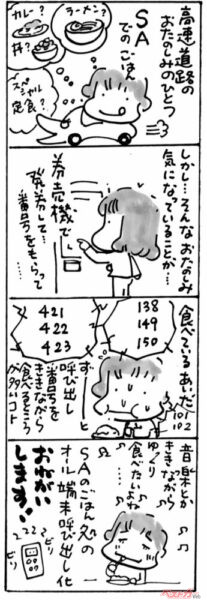 高速道路の
おたのしみのひとつ
SA
でのごはん
ラーメン?
カレー?
丼?
スペシャル
定食?
しかし…そんなおたのしみ
気になっていることが…
券売機で
発券して…
番号をもらって
……
食べているあいだ
138
149
150
421
422
423
ずーーっと
呼び出し
番号を
ききながら
食べるところ
101
102
音楽とか
ききながら
ゆっくり
食べたいよね
SAのごはん処の
オール端末呼び出し化
おねがい
します!
ピリ
ピリ
ベストカーWeb